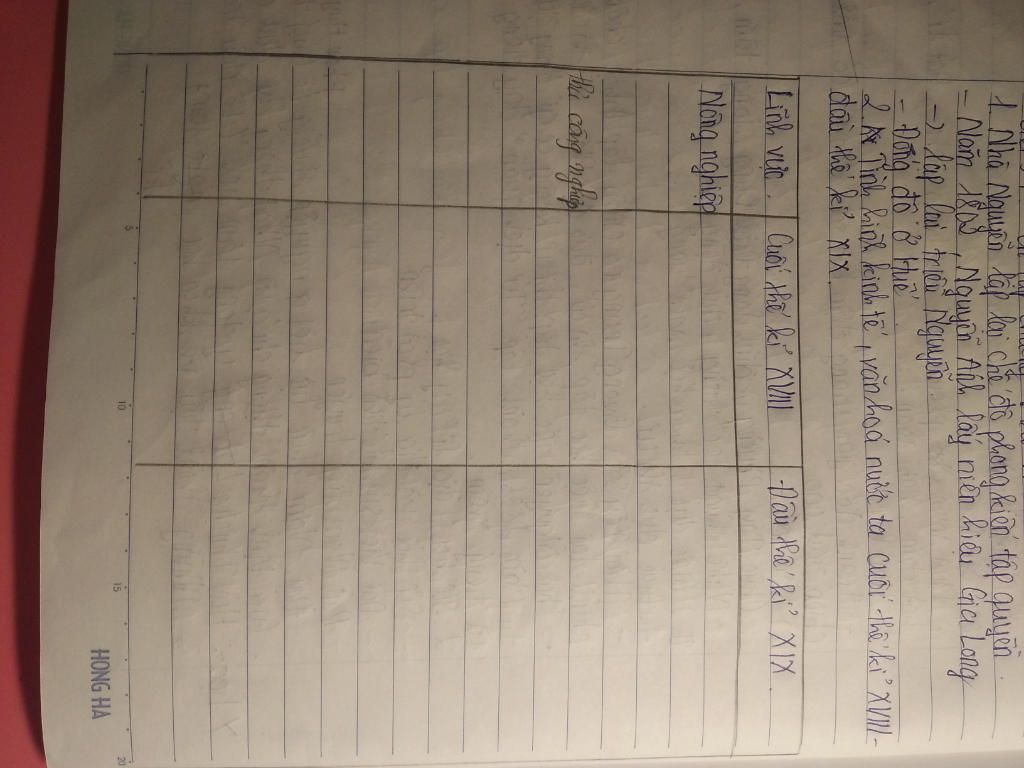 1. Nhà Nguyễn lập lại chế độ phong kiến tập quyền.
- Năm, Nguyễn Ánh lấy niên hiệu Gia Long
-> lập lại triều Nguyễn
- Đóng đô ở Huế
2. Tình hình kinh tế, văn hoá nước ta cuối thế kỉ XVIII -
đầu thế kỉ XIX.
Lĩnh vực Cuối thế kỉ XVIII - Đầu thế kỉ XIX
Nông nghiệp
Thủ công nghiệp
5 10 15 20
HONG HA